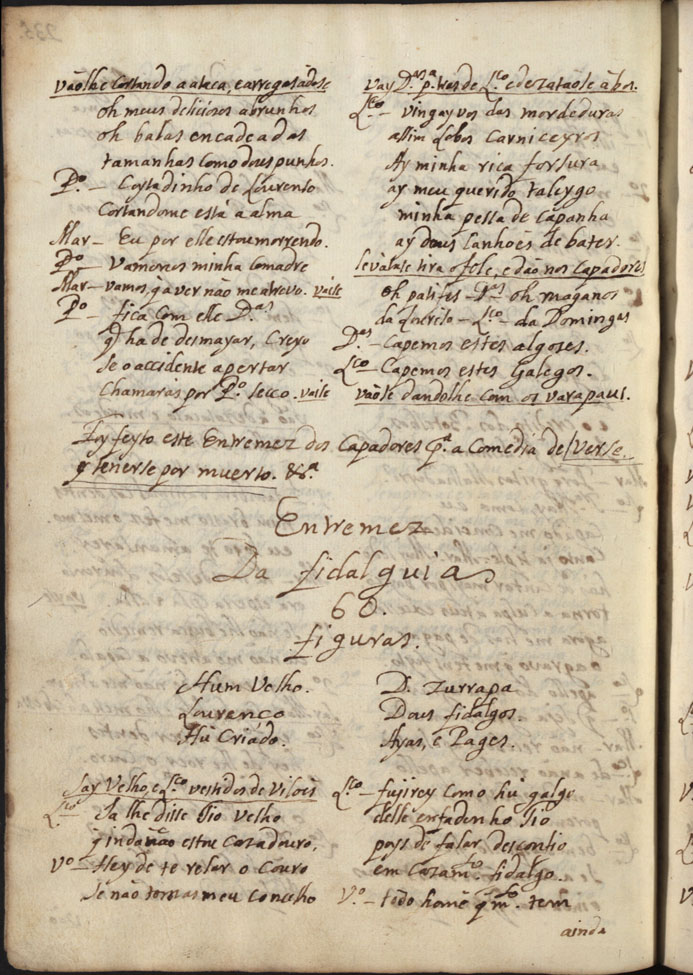 vãolhe Cortando a ataca, e arregasãose
oh meus deliciosos abrunhos
oh balas encadeadas
tamanhas como dous punhos.
P.º – Costadinho de Lourenso
Cortandome está a alma
Mar – Eu por elle estou morrendo.
P.º – Vamonos minha comadre
Mar – vamos, ja ver não me atrevo. vaise
P.º – fica com elle D.as
q̃ ha de desmayar, Creyo
se o accidente apertar
Chamarás por P.º secco. vaise
vay D.as p.a tras de L.ço e dezataõse a bos.
L.ço – vingayvos das mordeduras
assim Lobos Carniceyros
Ay minha rica forsura
ay meu querido taleygo
minha pessa de capanha
ay dous Canhoẽs de bater.
levãtase tira o fole, e dão nos Capadores
oh patifes – D.as oh maganos
da Lourenso – L.ço – da Domingas
D.as – Capemos estes algozes.
L.ço – Capemos estes Galegos.
vaõse dandolhe com os varapaus.
Foy feyto este Entremez dos Capadores p.a a Comedia de Verse
y tenerse por muerto. &.a
Entremez
Da fidalguia
60.
figuras.
Hum Velho.
Lourenço
Hũ Criado.
D. Zurrapa
Dous fidalgos.
Ayas, e Pages.
Say Velho, e L.ço vestidos de Viloẽs
L.ço – Ja lhe disse Tio velho
q̃ inda não estou Cazadouro,
V.º – Hey de te relar o Couro
se não tomas meu Concelho
L.ço – fujirey como hũ galgo
delle enfadonho Tio
poys de falar desconfio
em Cazam.to fidalgo.
V.º – todo homẽ q̃ m.to tem
ainda